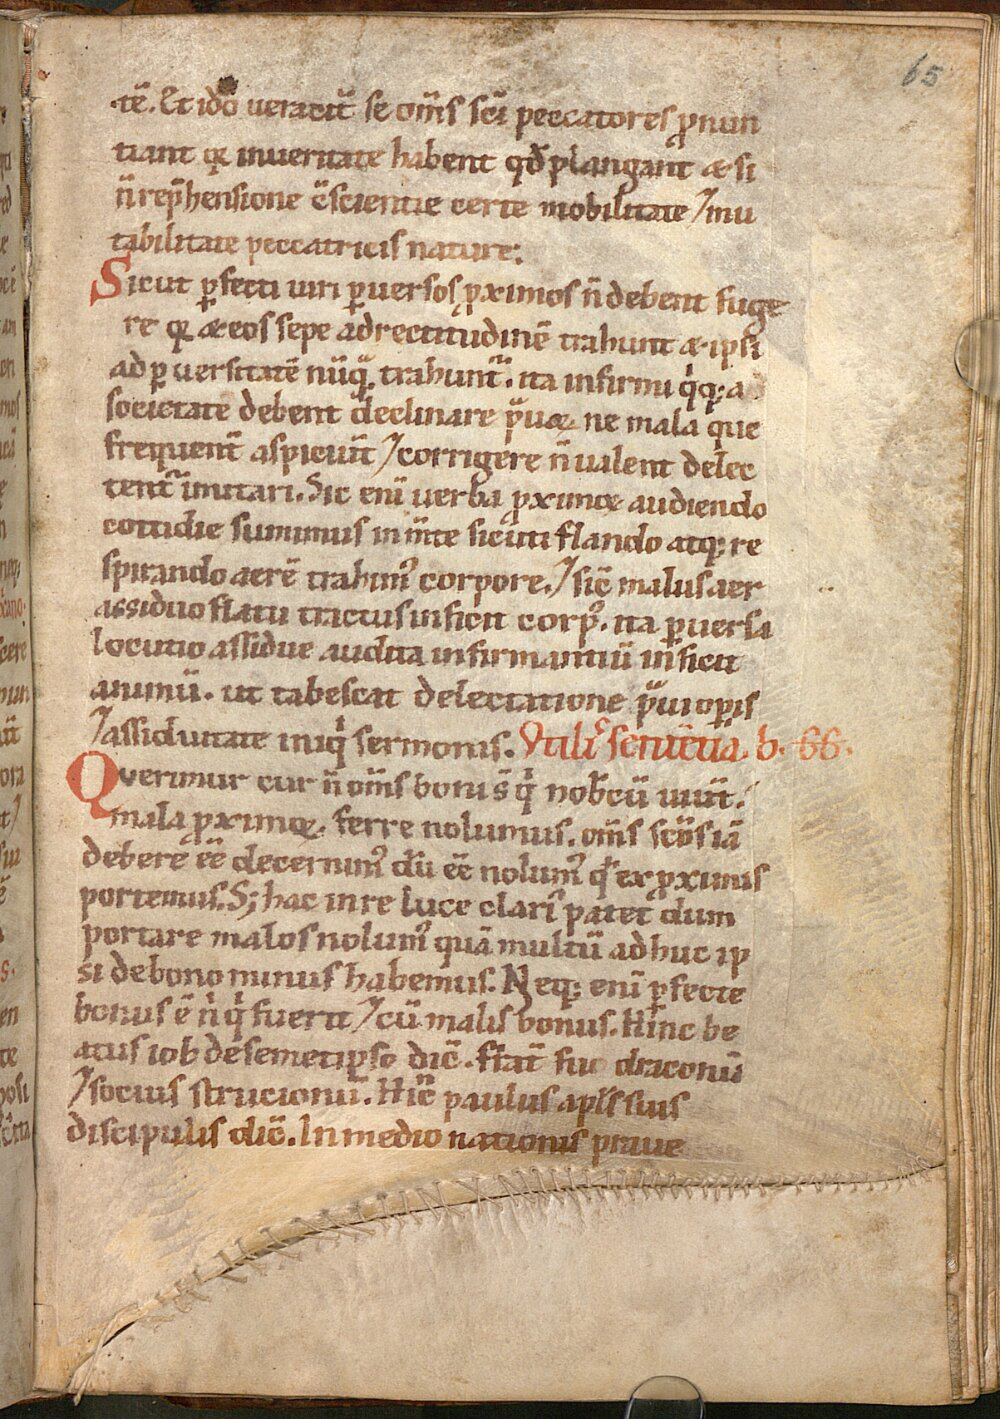 65
tē. Et ido ueracit̄ se om̄s sc̄i peccatores ꝓnun
tiant qꝛ inueritate habent qd̄ plangant & si
n̄ rep̄hensione c̄scientie certe mobilitate ⁊ mu
tabilitate peccatricis nature:
Sicut ꝑfecti uiri ꝑuersos ꝓximos n̄ debent fuge
re qꝛ & eos sepe adrectitudinē trahunt & ipsi
ad ꝑuersitatē nūq̄ trahunt̄. ita infirmi q̇q; a
societate debent declinare p̄uæ. ne mala que
frequent̄ aspiciūt ⁊ corrigere n̄ ualent delec
tent̄ imitari. Sic enī uerba ꝓximoꝝ audiendo
cottidie sumimus in m̄te sicuti flando atq; re
spirando aerē trahimꝰ corpore. ⁊ sic̄ malus aer
assiduo flatu tractus inficit corpꝰ. ita ꝑuersa
locutio assidue audita infirmantiū inficit
animū. ut tabescat delectatione p̄ui opis
⁊ assiduitate iniq̇ sermonis. Vtilꝭ sentētia. b. 66.
Querimur cur n̄ om̄s boni s̄ q̇ nobcū uiūt.
mala ꝓximoꝝ. ferre nolumus. om̄s sc̄os iā
debere ēē decernimꝰ dū ēē nolumꝰ qd̄ ex ꝓximis
portemus. S; hac in re luce clariꝰ patet dum
portare malos nolumꝰ quā multū ad huc ip
si de bono minus habemus. Neq; enī ꝑfecte
bonus ē n̄ q̇ fuerit ⁊ cū malis bonus. Hinc be
atus iob de semetipso dic̄. Frat̄ fui draconū
⁊ socius strucionū. Hic̄ paulus apl̄s suis
discipulis dic̄. In medio nationis praue